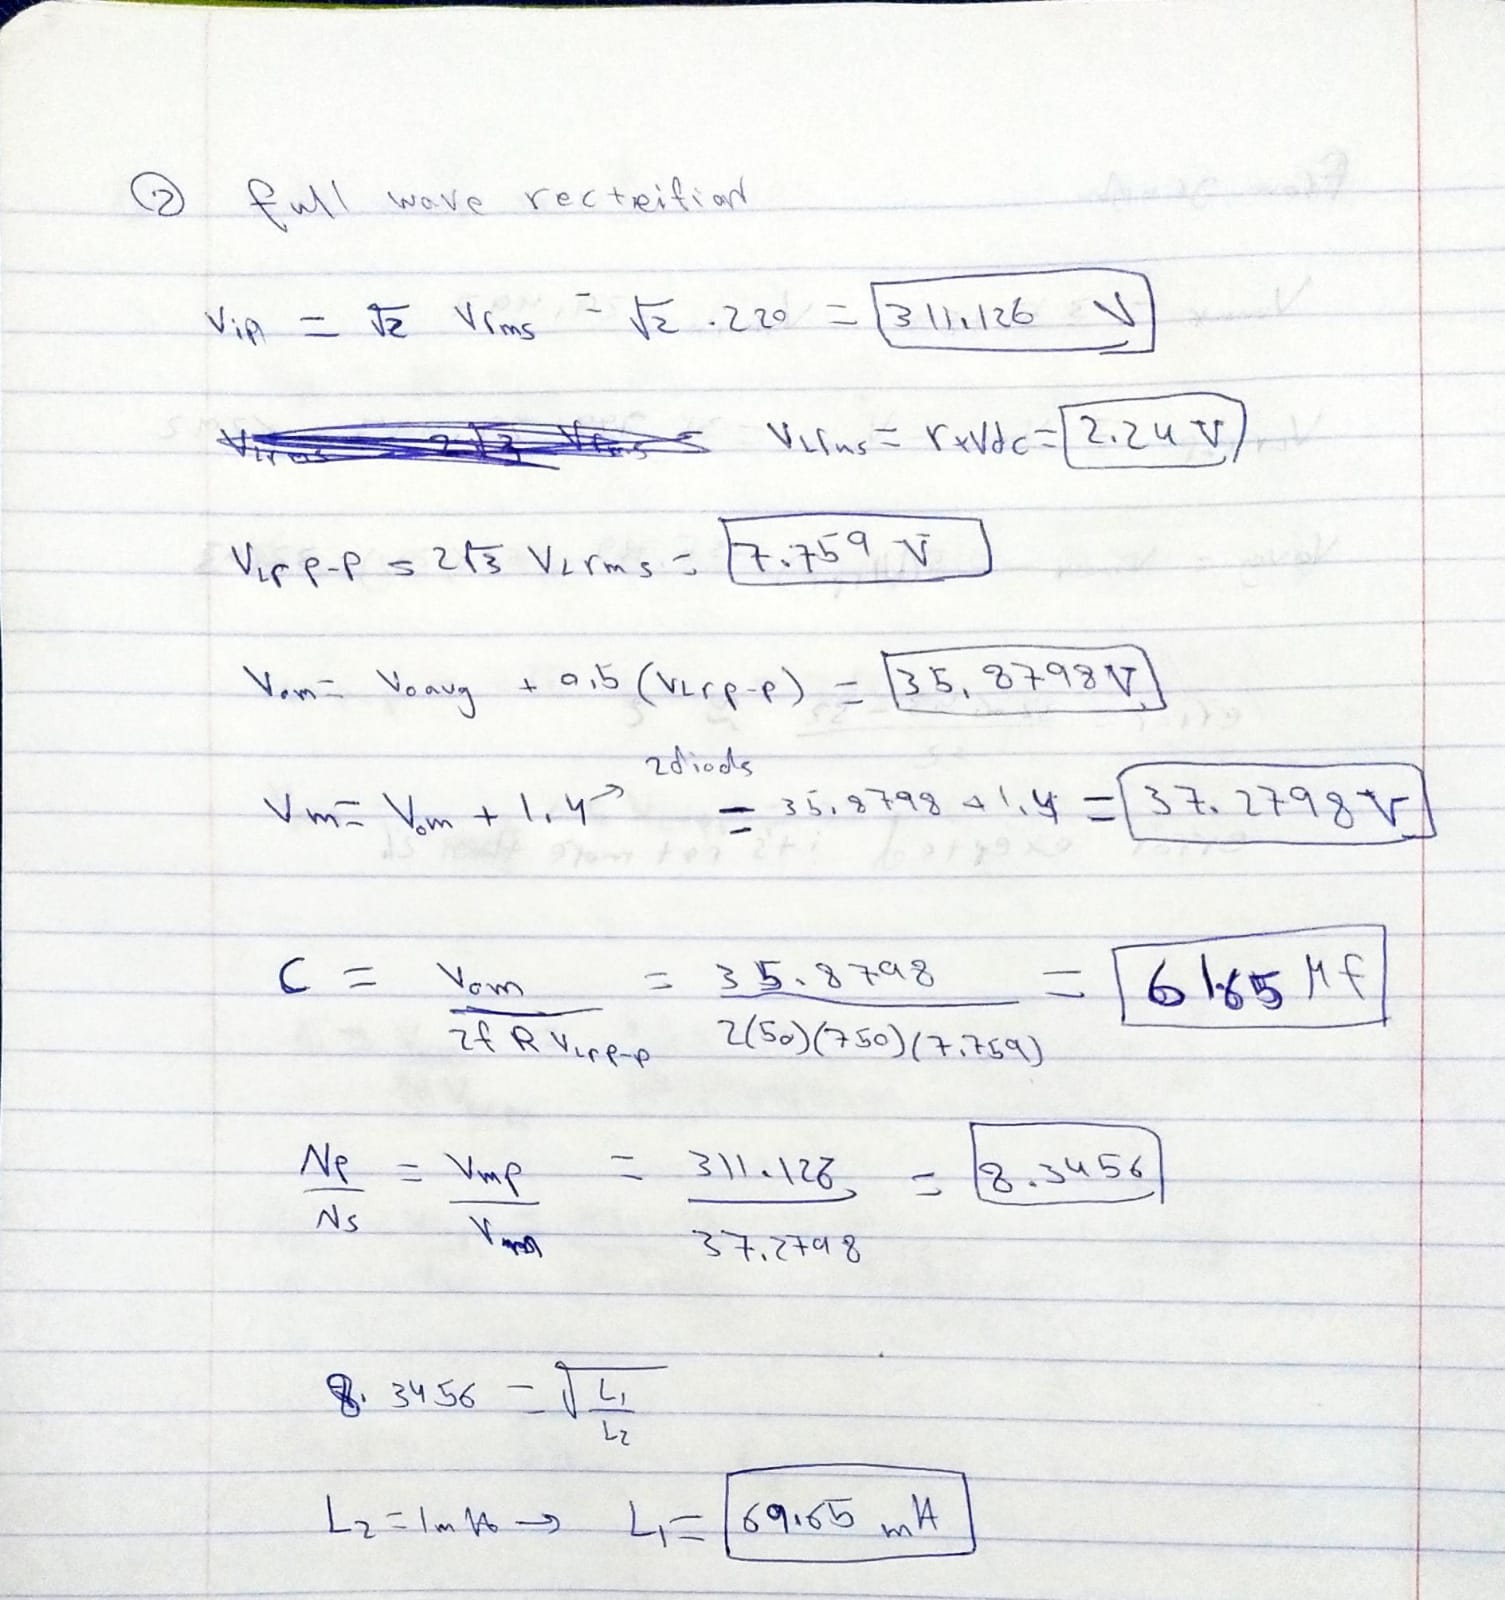 ② full wave rectreifiar
Vip = √2 Vrms = √2 . 220 = 311.126 V
VLrms = r x Vdc = 2.24 V
VLr p-p = 2√3 VLrms = 7.759 V
Vom = Vo avg + 0.5 (VLr p-p) = 35.8798 V
2 diods
Vm = Vom + 1.4 → = 35.8798 + 1.4 = 37.2798 V
C = Vom / 2f R VLr p-p = 35.8798 / 2(50)(750)(7.759) = 61.65 Mf
Np / Ns = Vmp / = 311.126 / 37.2798 = 8.3456
8.3456 = √ L1 / L2
L2 = 1mH → L1 = 69.65 mH